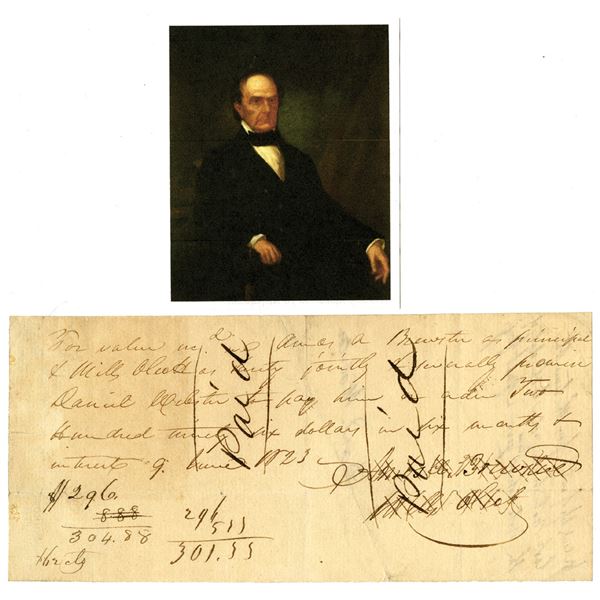 For value rec.d we Amos A Brewster as principal
& Mills Olcott as surety jointly & severally promise
Daniel Webster to pay him or order Two
Hundred ninety six dollars in six months &
interest 9 June 1823
Paid
Paid
Amos A. Brewster
Mills Olcott
$296.
888
304.88
296
5.55
301.55